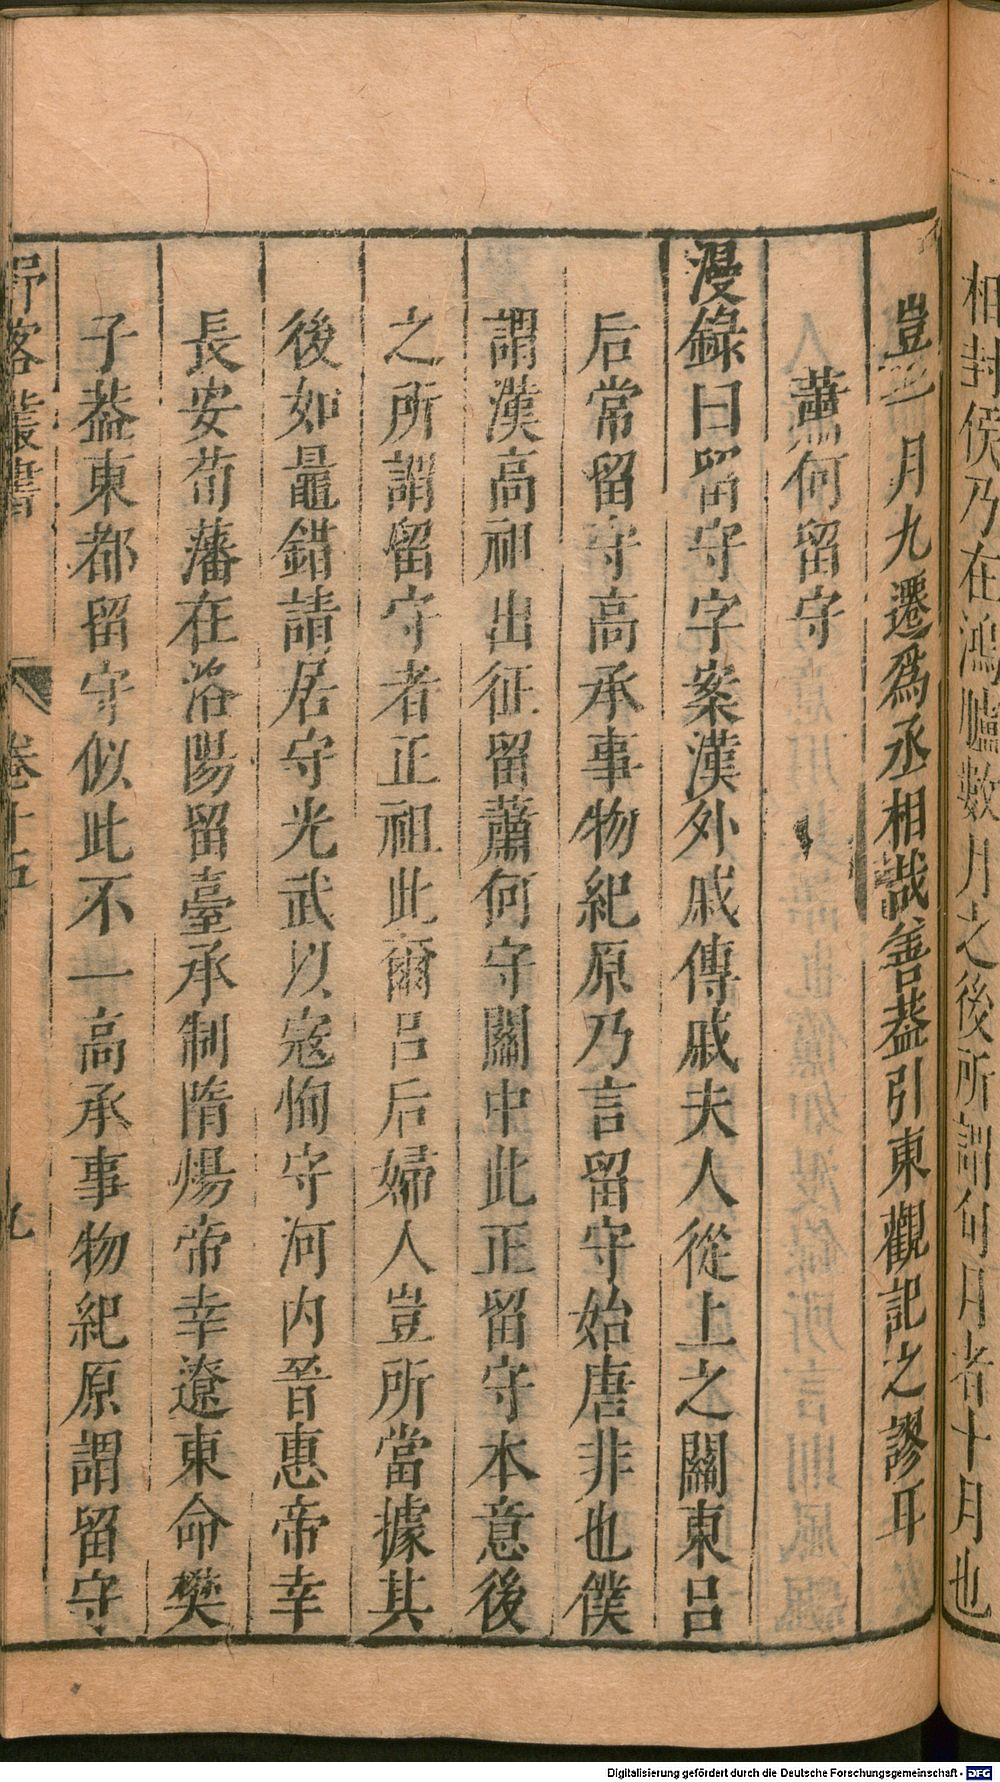 相封侯乃在鴻臚數月之後所謂旬月者十月也
豈三月九遷爲丞相哉蓋引東觀記之謬耳
蕭何留守
漫錄曰留守字案漢外戚傳戚夫人從上之關東呂
后常留守高承事物紀原乃言留守始唐非也僕
謂漢高祖出征留蕭何守關中此正留守本意後
之所謂留守者正祖此爾呂后婦人豈所當據其
後如鼂錯請居守光武以寇恂守河内晉惠帝幸
長安荀藩在洛陽留臺承制隋煬帝幸遼東命樊
子葢東都留守似此不一高承事物紀原謂留守
野客叢書 卷十五 九
Digitalisierung gefördert durch die Deutsche Forschungsgemeinschaft - DFG